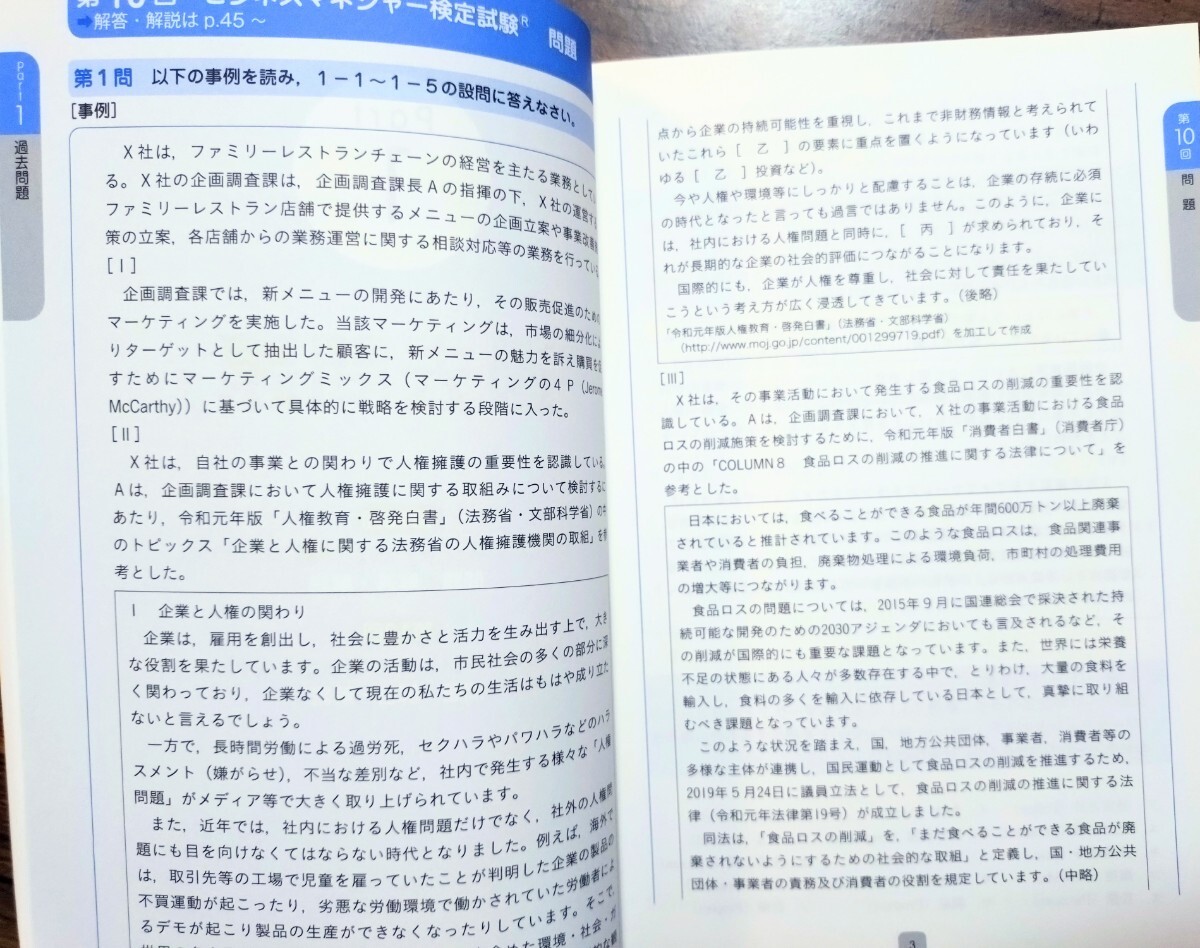 ビジネスマネジャー検定試験R 問題
➡解答・解説は p.45 ～
Part 1
過去問題
第1問 以下の事例を読み，1－1～1－5の設問に答えなさい。
[事例]
X社は，ファミリーレストランチェーンの経営を主たる業務として
る。X社の企画調査課は，企画調査課長Aの指揮の下，X社の運営す
ファミリーレストラン店舗で提供するメニューの企画立案や事業改善
策の立案，各店舗からの業務運営に関する相談対応等の業務を行ってい
[Ⅰ]
企画調査課では，新メニューの開発にあたり，その販売促進のための
マーケティングを実施した。当該マーケティングは，市場の細分化によ
りターゲットとして抽出した顧客に，新メニューの魅力を訴え購買を促
すためにマーケティングミックス（マーケティングの4P（Jerome
McCarthy））に基づいて具体的に戦略を検討する段階に入った。
[Ⅱ]
X社は，自社の事業との関わりで人権擁護の重要性を認識している。
Aは，企画調査課において人権擁護に関する取組みについて検討するに
あたり，令和元年版「人権教育・啓発白書」（法務省・文部科学省）の中
のトピックス「企業と人権に関する法務省の人権擁護機関の取組」を参
考とした。
Ⅰ 企業と人権の関わり
企業は，雇用を創出し，社会に豊かさと活力を生み出す上で，大き
な役割を果たしています。企業の活動は，市民社会の多くの部分に深
く関わっており，企業なくして現在の私たちの生活はもはや成り立た
ないと言えるでしょう。
一方で，長時間労働による過労死，セクハラやパワハラなどのハラ
スメント（嫌がらせ），不当な差別など，社内で発生する様々な「人権
問題」がメディア等で大きく取り上げられています。
また，近年では，社内における人権問題だけでなく，社外の人権問
題にも目を向けなくてはならない時代となりました。例えば，海外で
は，取引先等の工場で児童を雇っていたことが判明した企業の製品の
不買運動が起こったり，劣悪な労働環境で働かされていた労働者によ
るデモが起こり製品の生産ができなくなったりしています。そこで，
た環境・社会・ガ
第10回
問題
点から企業の持続可能性を重視し，これまで非財務情報と考えられて
いたこれら［ 乙 ］の要素に重点を置くようになっています（いわ
ゆる［ 乙 ］投資など）。
今や人権や環境等にしっかりと配慮することは，企業の存続に必須
の時代となったと言っても過言ではありません。このように，企業に
は，社内における人権問題と同時に，［ 丙 ］が求められており，そ
れが長期的な企業の社会的評価につながることになります。
国際的にも，企業が人権を尊重し，社会に対して責任を果たしてい
こうという考え方が広く浸透してきています。（後略）
「令和元年版人権教育・啓発白書」（法務省・文部科学省）
（http://www.moj.go.jp/content/001299719.pdf）を加工して作成
[Ⅲ]
X社は，その事業活動において発生する食品ロスの削減の重要性を認
識している。Aは，企画調査課において，X社の事業活動における食品
ロスの削減施策を検討するために，令和元年版「消費者白書」（消費者庁）
の中の「COLUMN8 食品ロスの削減の推進に関する法律について」を
参考とした。
日本においては，食べることができる食品が年間600万トン以上廃棄
されていると推計されています。このような食品ロスは，食品関連事
業者や消費者の負担，廃棄物処理による環境負荷，市町村の処理費用
の増大等につながります。
食品ロスの問題については，2015年9月に国連総会で採決された持
続可能な開発のための2030アジェンダにおいても言及されるなど，そ
の削減が国際的にも重要な課題となっています。また，世界には栄養
不足の状態にある人々が多数存在する中で，とりわけ，大量の食料を
輸入し，食料の多くを輸入に依存している日本として，真摯に取り組
むべき課題となっています。
このような状況を踏まえ，国，地方公共団体，事業者，消費者等の
多様な主体が連携し，国民運動として食品ロスの削減を推進するため，
2019年5月24日に議員立法として，食品ロスの削減の推進に関する法
律（令和元年法律第19号）が成立しました。
同法は，「食品ロスの削減」を，「まだ食べることができる食品が廃
棄されないようにするための社会的な取組」と定義し，国・地方公共
団体・事業者の責務及び消費者の役割を規定しています。（中略）
3